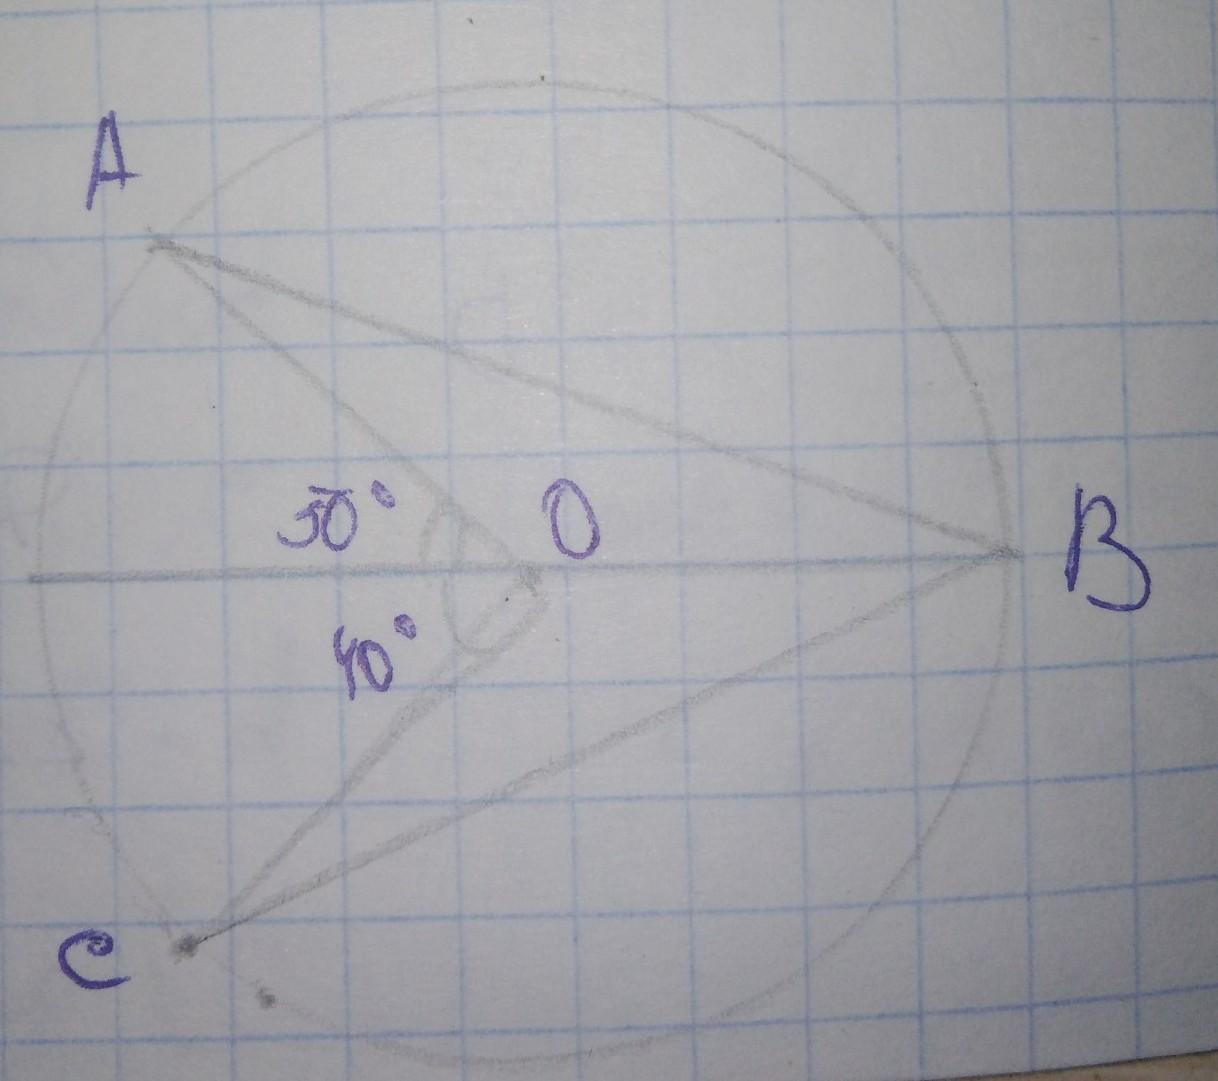 A
50° O
B
40°
C